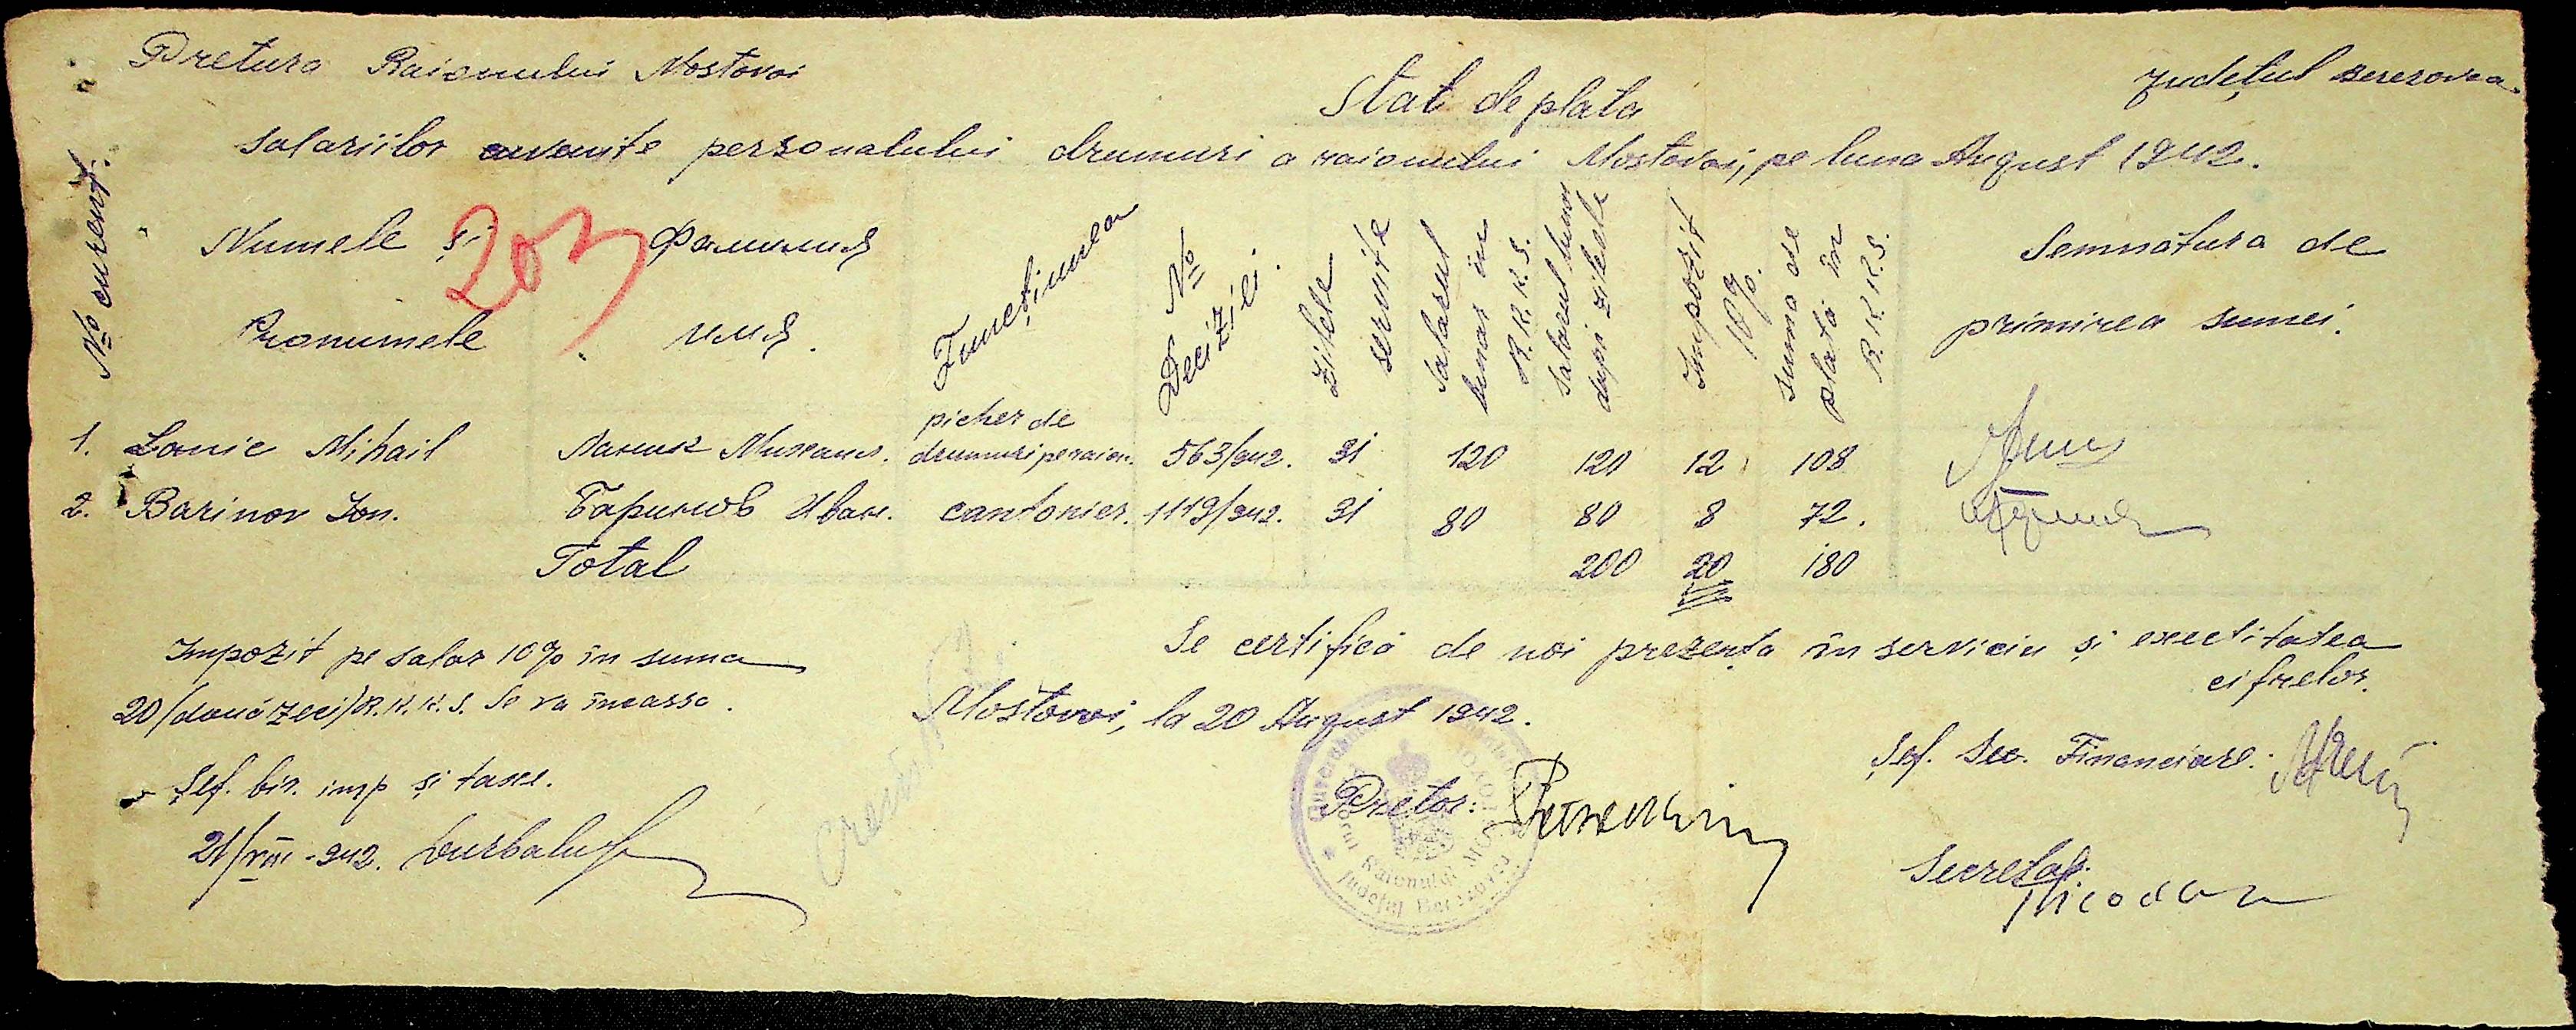 Pretura Raionului Mostovoi
Județul Berezovca.
Stat de plata
salariilor cuvenite personalului drumuri a raionului Mostovoi, pe luna August 1942.
No curent.
Numele și
Pronumele
203
Фамилия
имя.
Funcțiunea
No
Deciziei.
Zilele
servite
Salarul
lunar în
R.K.K.S.
Salarul lunar
după zilele
Impozit
10%.
Suma de
plată în
R.K.K.S.
Semnătura de
primirea sumei.
1. Lanic Mihail Ланик Михаил. picher de drumuri pe raion. 563/942. 31 120 120 12 108
2. Barinov Ion. Баринов Иван. cantonier. 1119/942. 31 80 80 8 72.
Total 200 20 180
Se certifică de noi prezența în serviciu și exectitatea
cifrelor.
Impozit pe salar 10% în suma
20/două zeci/R.K.K.S. Se va incassa.
Mostovoi, la 20 August 1942.
Șef. bir. imp și taxe.
21/VIII-942.
Pretor:
Șef. Sec. Financiare.
Secretar.
Raionului MOSTOVOI
Județul Berezovca